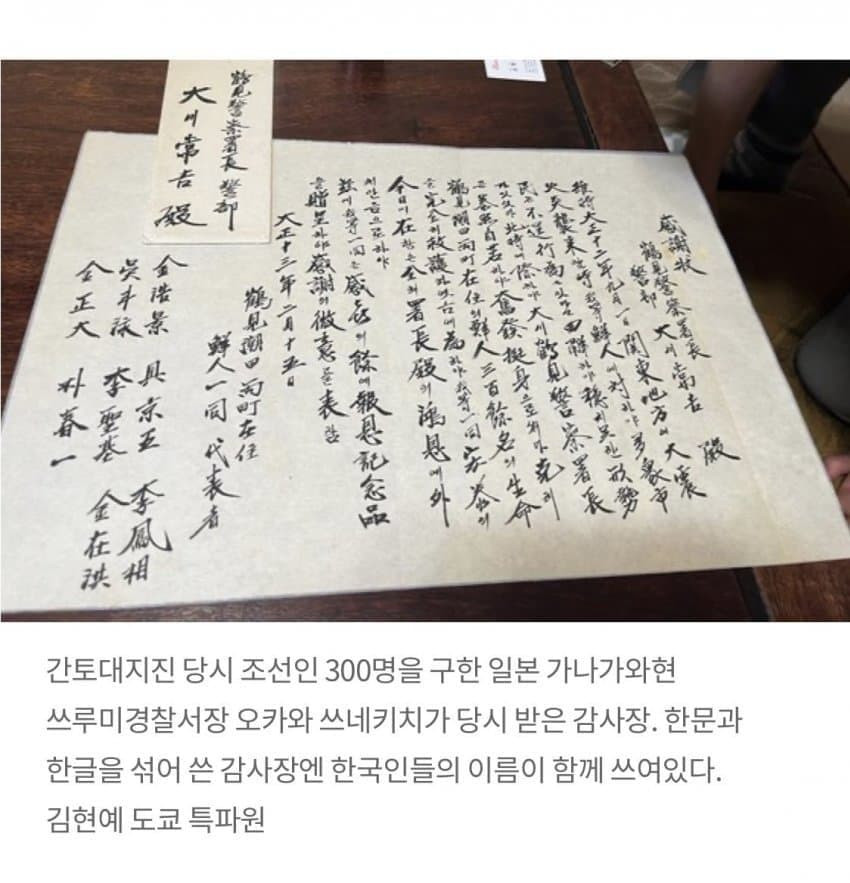 感謝狀
鶴見警察署長
警部 大川常吉 殿
維時大正十二年九月一日 関東地方의 大震
火災襲来 時 我等鮮人에 対하야 多衆市
民은 不逞行為 하야 穏지못한 形勢
此時에 際하야 大川鶴見警察署長
은 泰然自若하야 奮發挺身으로하야 克히
鶴見潮田両町在住의 鮮人三百餘名의 生命
을 完全히 救護 為하야 我等一同
今日에 在함은 全혀 署長殿의 鴻恩에 外
치안음으로하야
玆에 我等一同은 感喜의 餘에 報恩記念品
을 贈呈하야 感謝의 微意를 表함
大正十三年二月十五日
鶴見潮田両町在住
鮮人一同 代表者
金浩景 具京五 李鳳相
李聖基 金在洪
金正大 朴春一
鶴見警察署長 警部
大川常吉 殿
간토대지진 당시 조선인 300명을 구한 일본 가나가와현
쓰루미경찰서장 오카와 쓰네키치가 당시 받은 감사장. 한문과
한글을 섞어 쓴 감사장엔 한국인들의 이름이 함께 쓰여있다.
김현예 도쿄 특파원